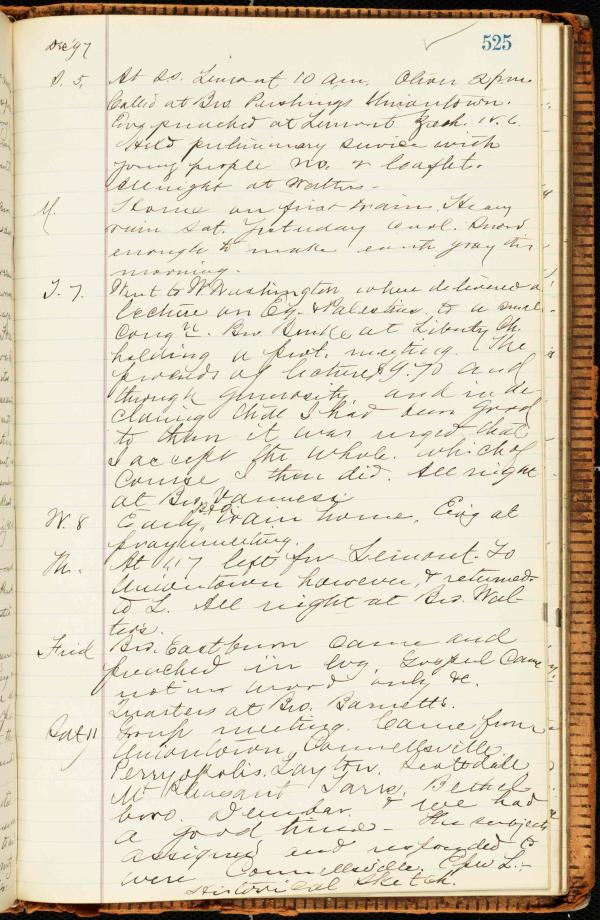 Dec 97
525
S. 5. At S.S. Lemont 10 am. Oliver 2 pm.
Called at Bro. Pershings Uniontown.
Evg preached at Lemont Zech. 14.6.
Held preliminary service with
young people no. & leaflet.
All night at Walters.
M. Home on first train. Heavy
rain Sat. Yesterday cool. Snow
enough to make earth gray this
morning.
T. 7. Went to W. Washington where delivered a
lecture on Eg. & Palestine, to a small
congn. Bro. at Liberty Ch.
holding a prot. meeting. The
proceeds of lecture $9.70 and
through generosity, and in de
claring that I had been good
to them it was urged that
I accept the whole. which of
course I then did. All night
at Bro. Vanness.
W. 8 Early train home. Evg at
praymeeting.
Th. At 1.17 left for Lemont. To
Uniontown however, & returned
to L. All night at Bro. Wal-
ters.
Frid Bro. Eastburn came and
preached in evg. Gospel came
not in word only &c.
Quarters at Bro. Barnetts.
Sat 11 Group meeting. Came from
Uniontown, Connellsville,
Perryopolis, Layton, Scottdale
Mt Pleasant Tarrs. Bethel
boro. Dunbar. & we had
a good time - The subjects
assigned and responded to
were Connellsville, Epw L.-
Historical Sketch.